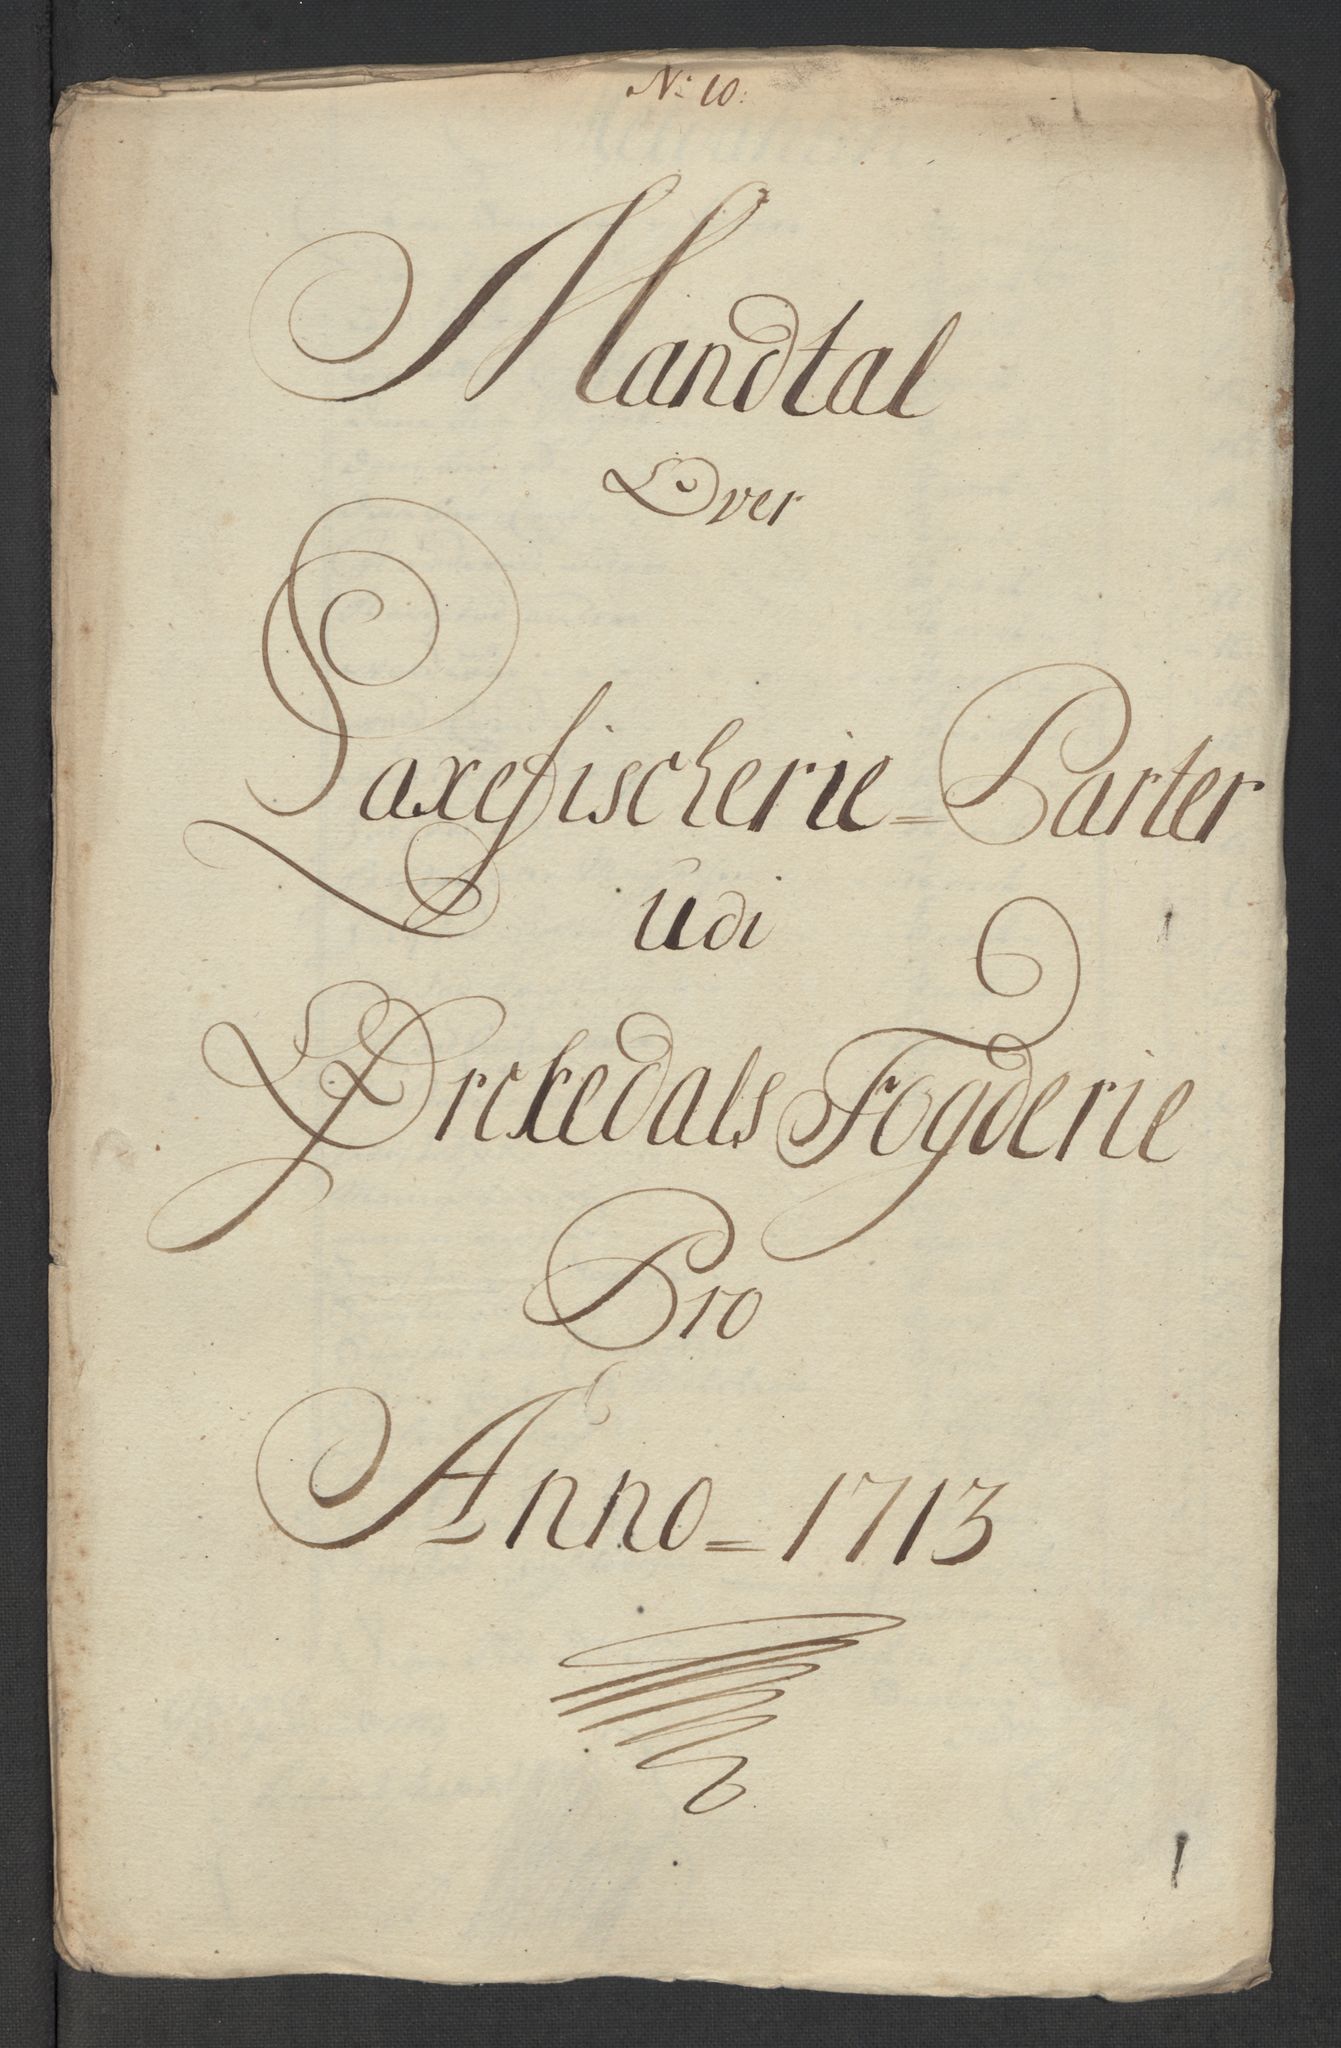 No: 10:
Mandtal
Over
Laxefischerie=Parter
Udi
Ørckedals Fogderie
Pro
Anno=1713